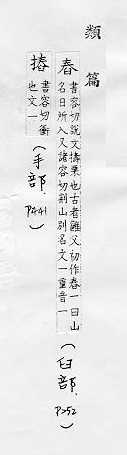 類篇
舂 書容切說文擣粟也古者雝父初作舂一曰山
名日所入又諸容切荊山別名文一重音一
(臼部,P252)
摏 書容切衝
也文一
(手部,P441)